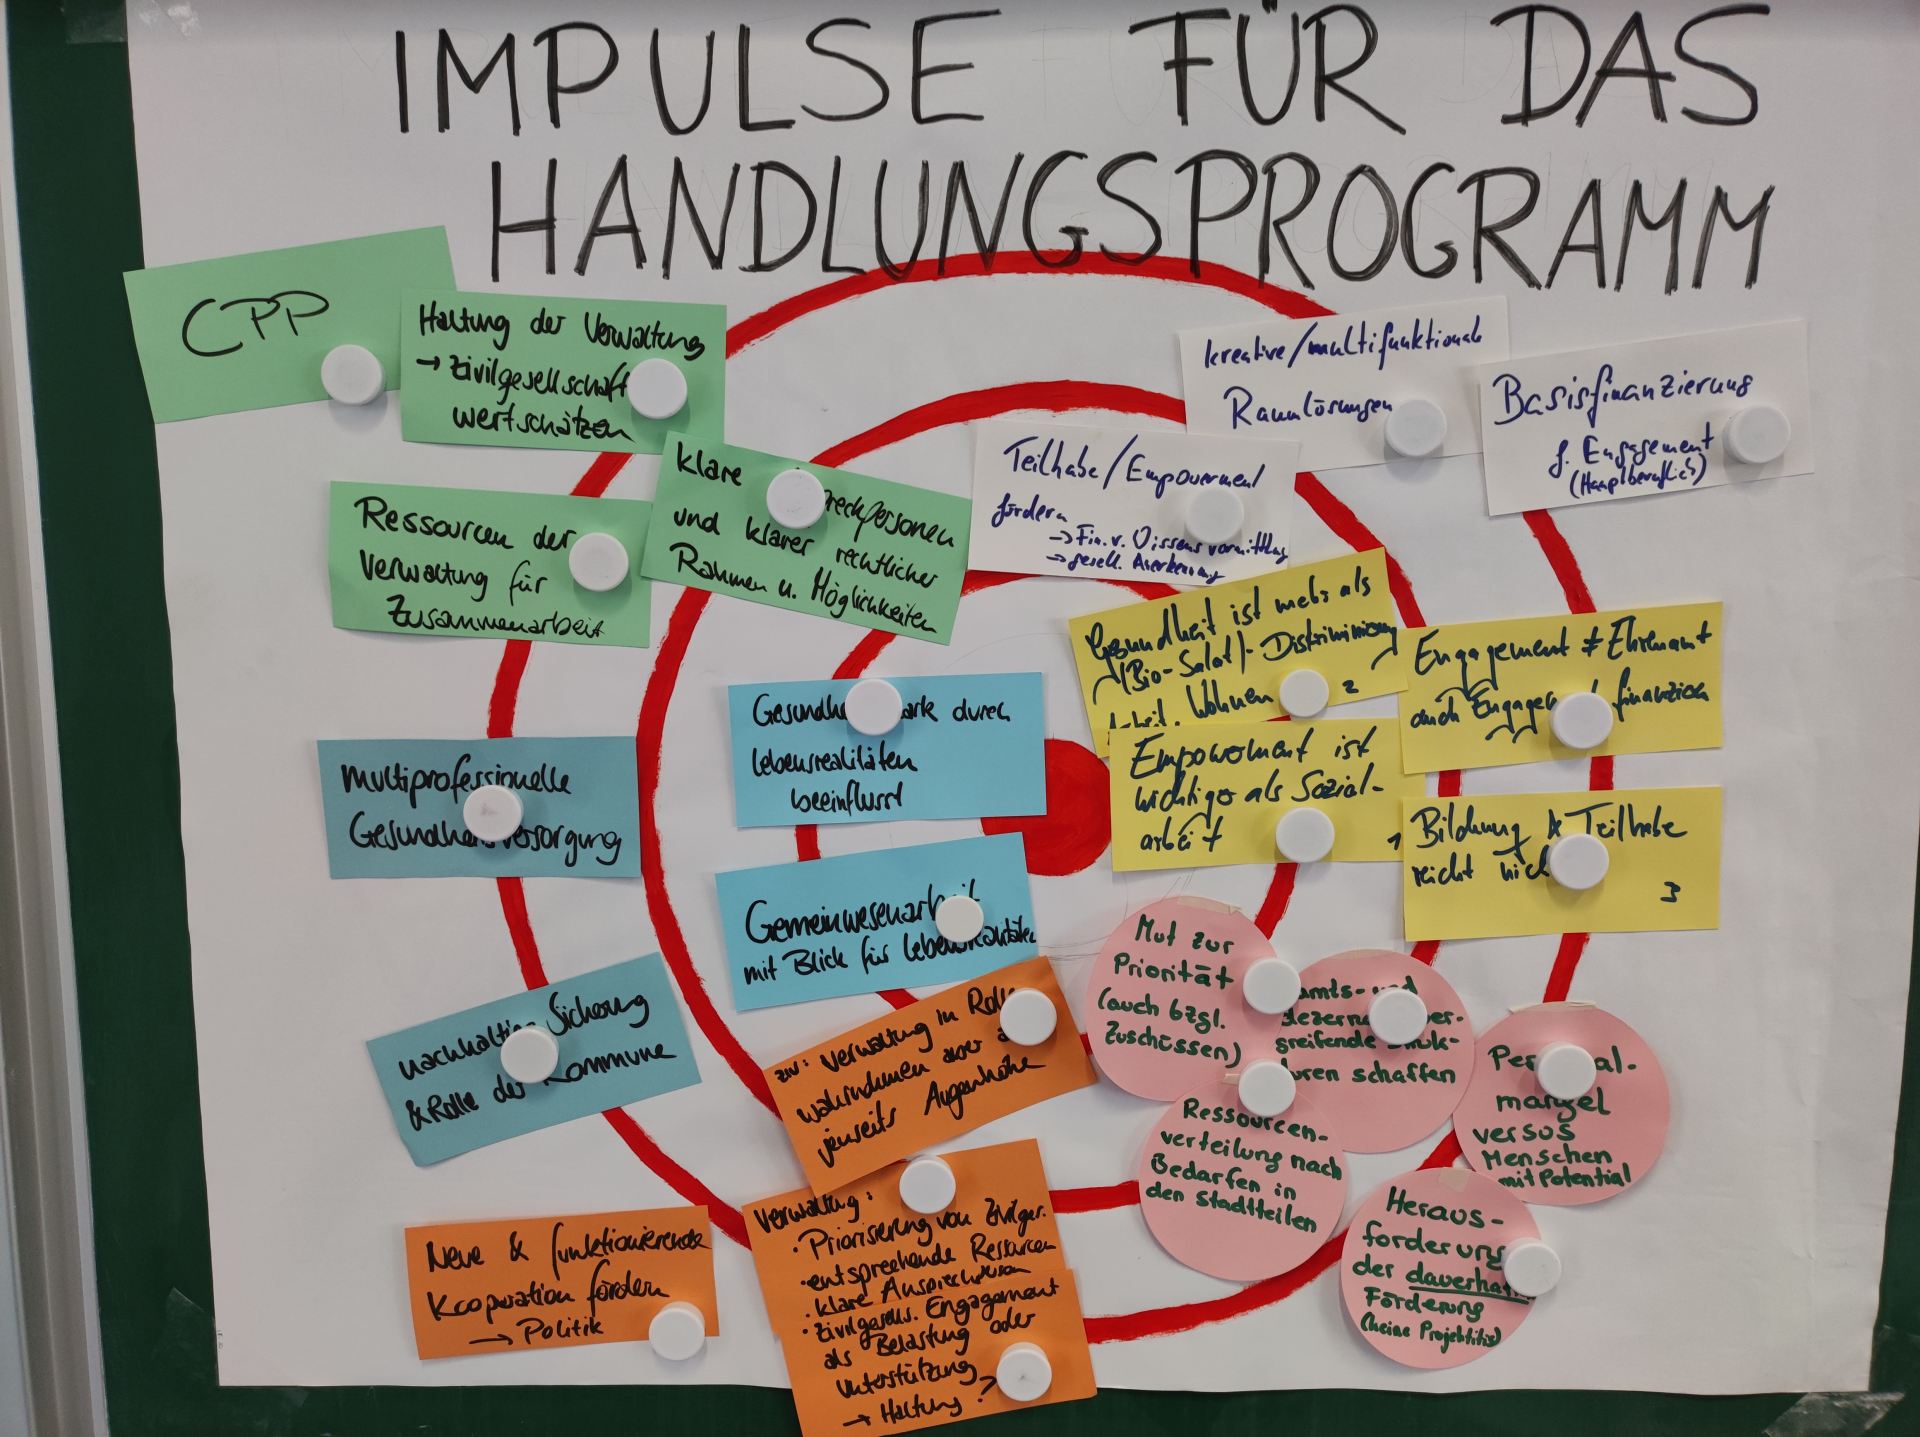 IMPULSE FÜR DAS
HANDLUNGSPROGRAMM
CPP
Haltung der Verwaltung
→ Zivilgesellschaft
wertschätzen
Ressourcen der
Verwaltung für
Zusammenarbeit
klare
und klarer rechtlicher
Rahmen u. Möglichkeiten
Teilhabe/Empowerment
fördern
→ Fin. v. Wissensvermittlung
→ gesell. Anerkennung
kreative/multifunktionale
Raumlösungen
Basisfinanzierung
f. Engagement
(Hauptberuflich)
Gesundheit ist mehr als
(Bio-Salat) - Diskriminierung
Arbeit, Wohnen
2
Engagement ≠ Ehrenamt
auch finanziell
Empowerment ist
wichtiger als Sozial-
arbeit
1
Bildung & Teilhabe
reicht
3
durch
Lebensrealitäten
beeinflusst
multiprofessionelle
Gesundheitsversorgung
Gemeinwesenarbeit
mit Blick für
Sicherung
& Rolle der Kommune
ziv: Verwaltung in
wahrnehmen aber
jenseits Augenhöhe
Neue & funktionierende
Kooperation fördern
→ Politik
Verwaltung:
· Priorisierung von Zivilges.
· entsprechende Ressourcen
· klare Ansprechperson
· Zivilgesells. Engagement
als Belastung oder
Unterstützung
→ Haltung?
Mut zur
Priorität
(auch bzgl.
Zuschüssen)
amts- und
greifende
schaffen
mangel
versus
Menschen
mit Potential
Ressourcen-
verteilung nach
Bedarfen in
den Stadtteilen
Heraus-
forderung
der
Förderung
(keine Projektitis)